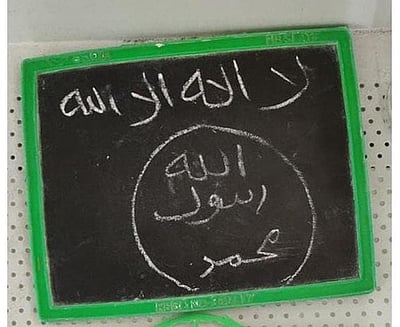 لا اله الا الله
الله
رسول
محمد